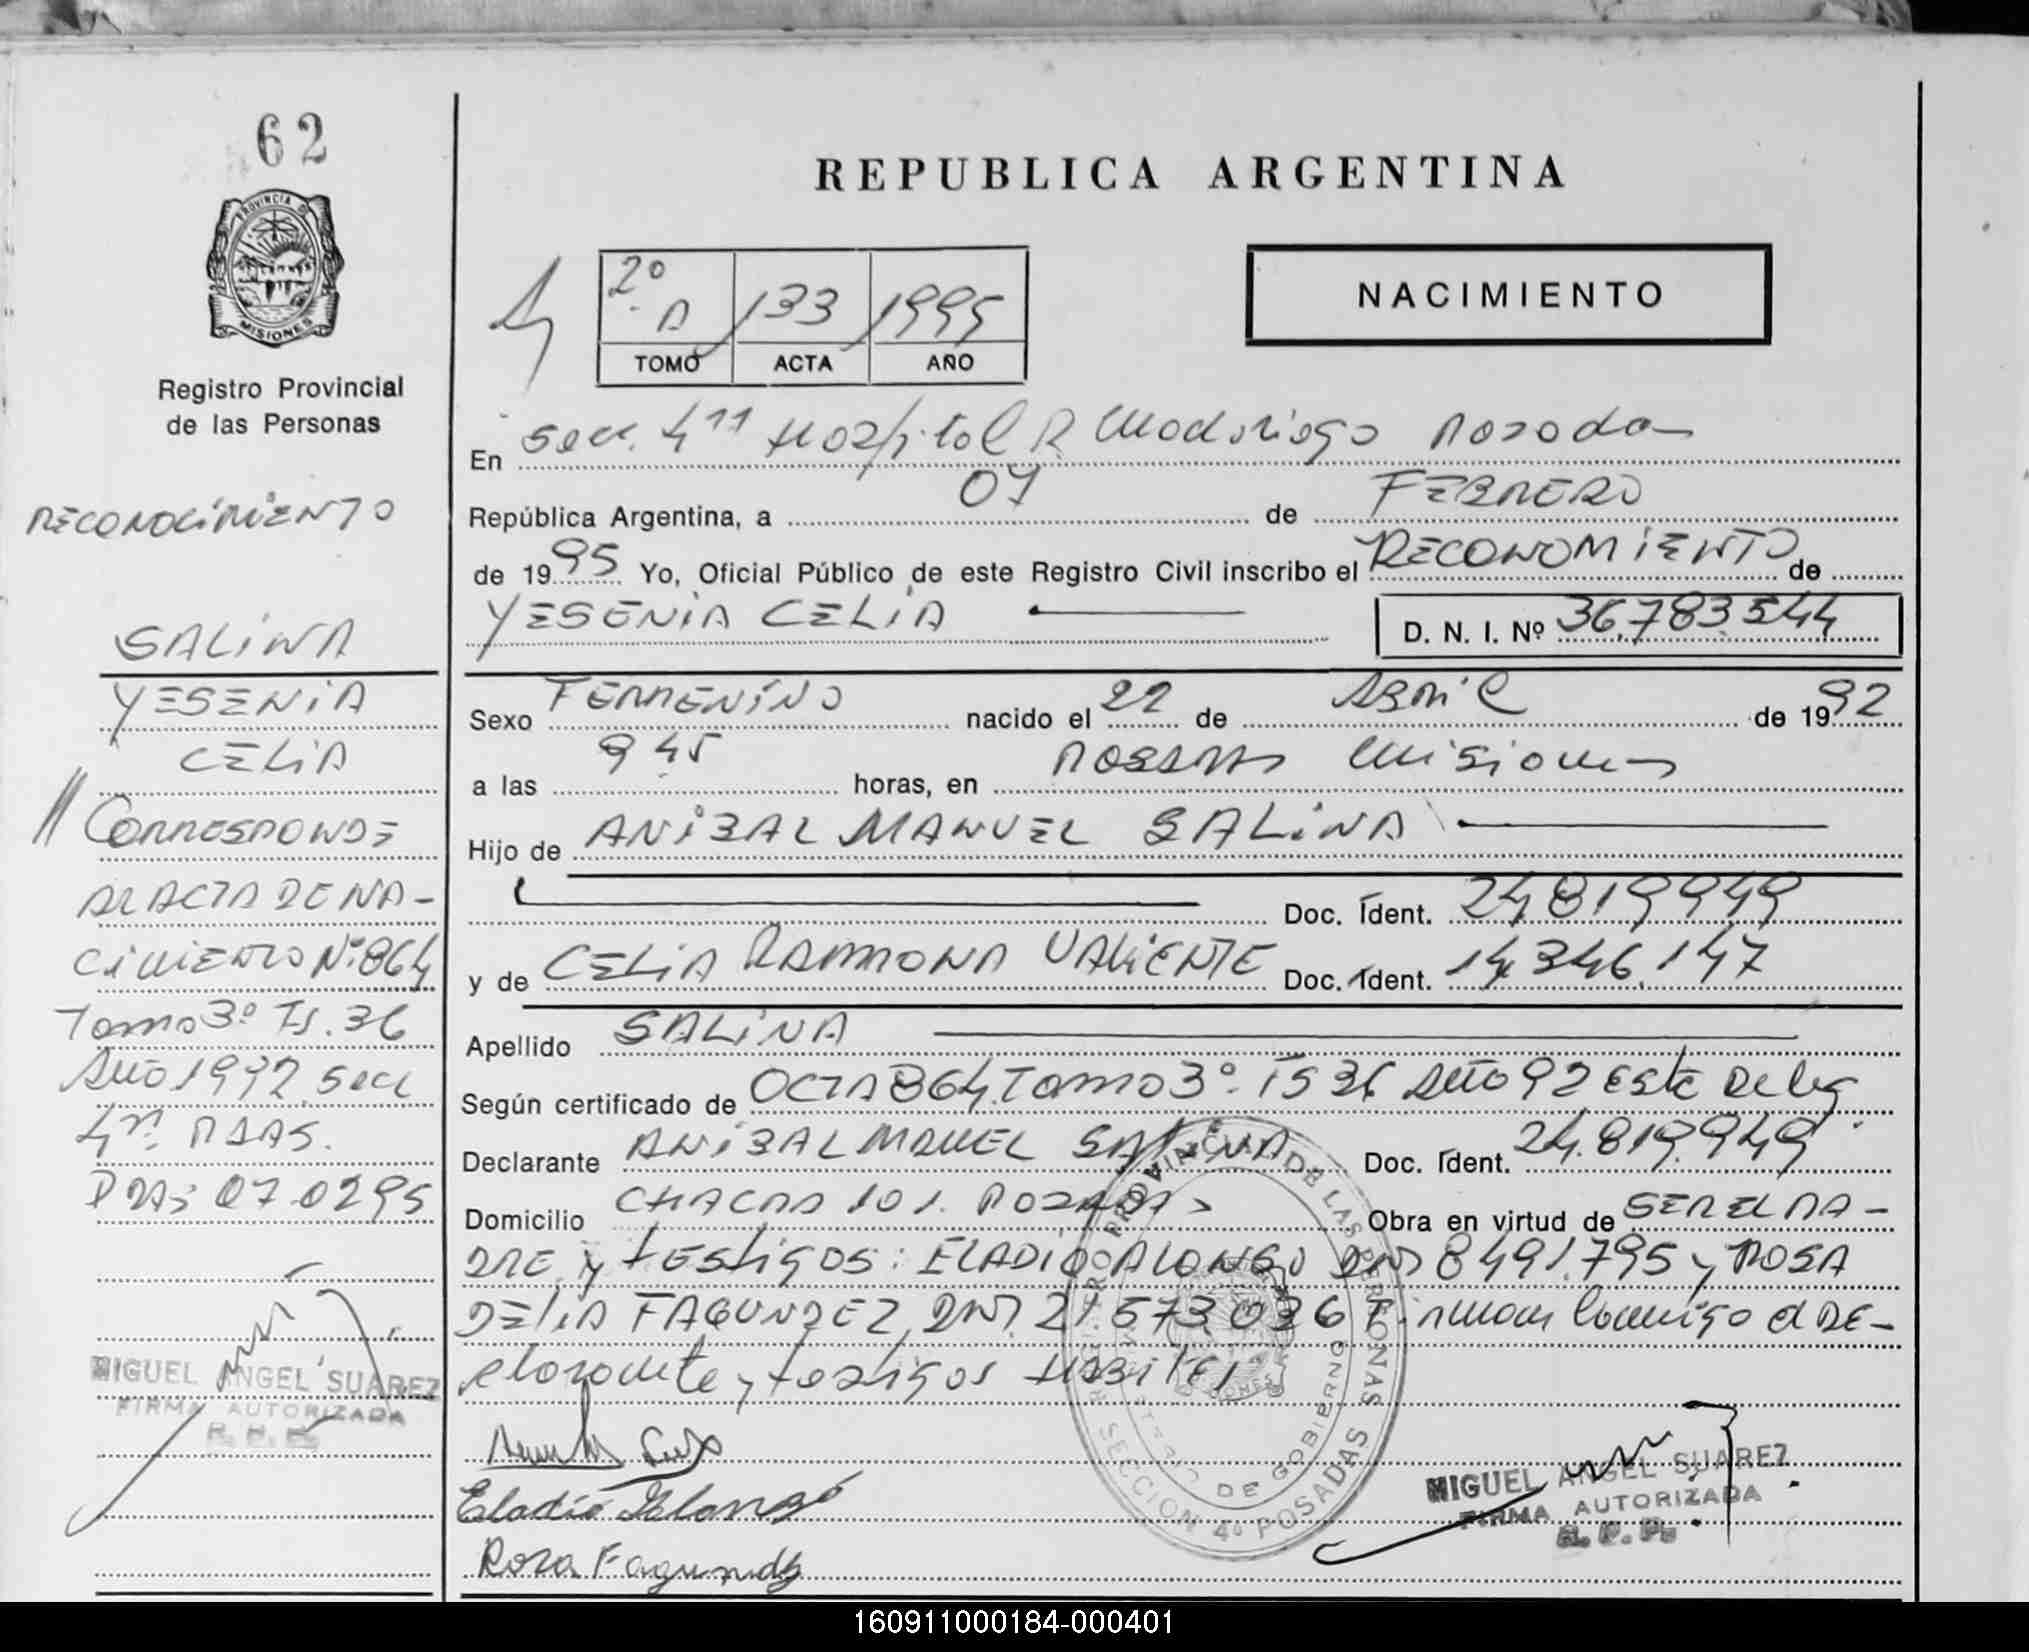 62
PROVINCIA D
MISIONES
Registro Provincial
de las Personas
RECONOCIMIENTO
SALINA
YESENIA
CELIA
// CORRESPONDE
AL ACTA DE NA-
CIMIENTO Nº 864
Tomo 3º Fs. 36
Año 1992 Secc
4ta. PDAS.
PDAS 07-02-95
MIGUEL ANGEL SUAREZ
FIRMA AUTORIZADA
R. P. P.
REPUBLICA ARGENTINA
2º
A 133 1995
TOMO ACTA AÑO
NACIMIENTO
En Secc. 4ta Hospital R Madariaga Posadas
República Argentina, a 07 de FEBRERO
de 1995 Yo, Oficial Público de este Registro Civil inscribo el RECONOMIENTO de
YESENIA CELIA D. N. I. Nº 36.783.544
Sexo FEMENINO nacido el 22 de ABRIL de 1992
a las 9 45 horas, en POSADAS Misiones
Hijo de ANIBAL MANUEL SALINA
Doc. Ident. 24819949
y de CELIA RAMONA VALIENTE Doc. Ident. 14.346.147
Apellido SALINA
Según certificado de ACTA 864 Tomo 3º Fs 36 Año 92 Esta Deleg.
Declarante ANIBAL MANUEL SALINA Doc. Ident. 24.819.949
Domicilio CHACRA 101. POSADAS Obra en virtud de SER EL PA-
DRE y testigos: ELADIO ALONSO DNI 8491.795 y ROSA
DELIA FAGUNDEZ, DNI. 21.573.036 Firman Conmigo el DE-
clarante y testigos Habiles
Eladio Alonso
Rosa Fagundez
REGISTRO PROVINCIAL DE LAS PERSONAS
MINISTERIO DE GOBIERNO
MISIONES
SECCION 4º POSADAS
MIGUEL ANGEL SUAREZ
FIRMA AUTORIZADA
R. P. P.
160911000184-000401